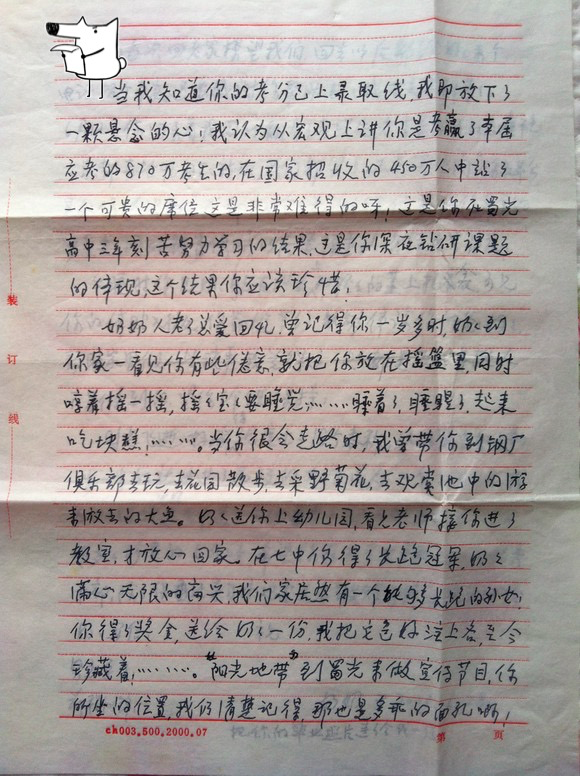 当我知道你的考分已上录取线,我即放下了
一颗悬念的心!我认为从宏观上讲你是考赢了本届
应考的870万考生的,在国家招收的450万人中站了
一个可贵的席位这是非常难得的呀!这是你在蜀光
高中三年刻苦努力学习的结果,这是你深在钻研课题
的体现,这个结果你应该珍惜!
奶奶人老了总爱回忆,曾记得你一岁多时,奶々到
你家一看见你有些倦意,就把你放在摇篮里,同时
哼着摇一摇,摇々宝々要睡觉……睡着了,睡醒了,起来
吃块糕!……。当你很会走路时,我曾带你到钢厂
俱乐部去玩,去花园散步,去采野菊花,去观赏池中的游
来放去的大鱼。奶々送你上幼儿园,看见老师接你进了
教室,才放心回家。在七中你得了长跑冠军奶々
满心无限的高兴,我们家居然有一个能够长跑的孙女!
你得了奖金,送给奶々一份,我把它包好注上名,至今
珍藏着!……。"阳光地带"到蜀光来做宣传节目,你
所坐的位置,我们清楚记得,那也是多乖的面孔啊!
装
订
线
ch003.500.2000.07
第 页